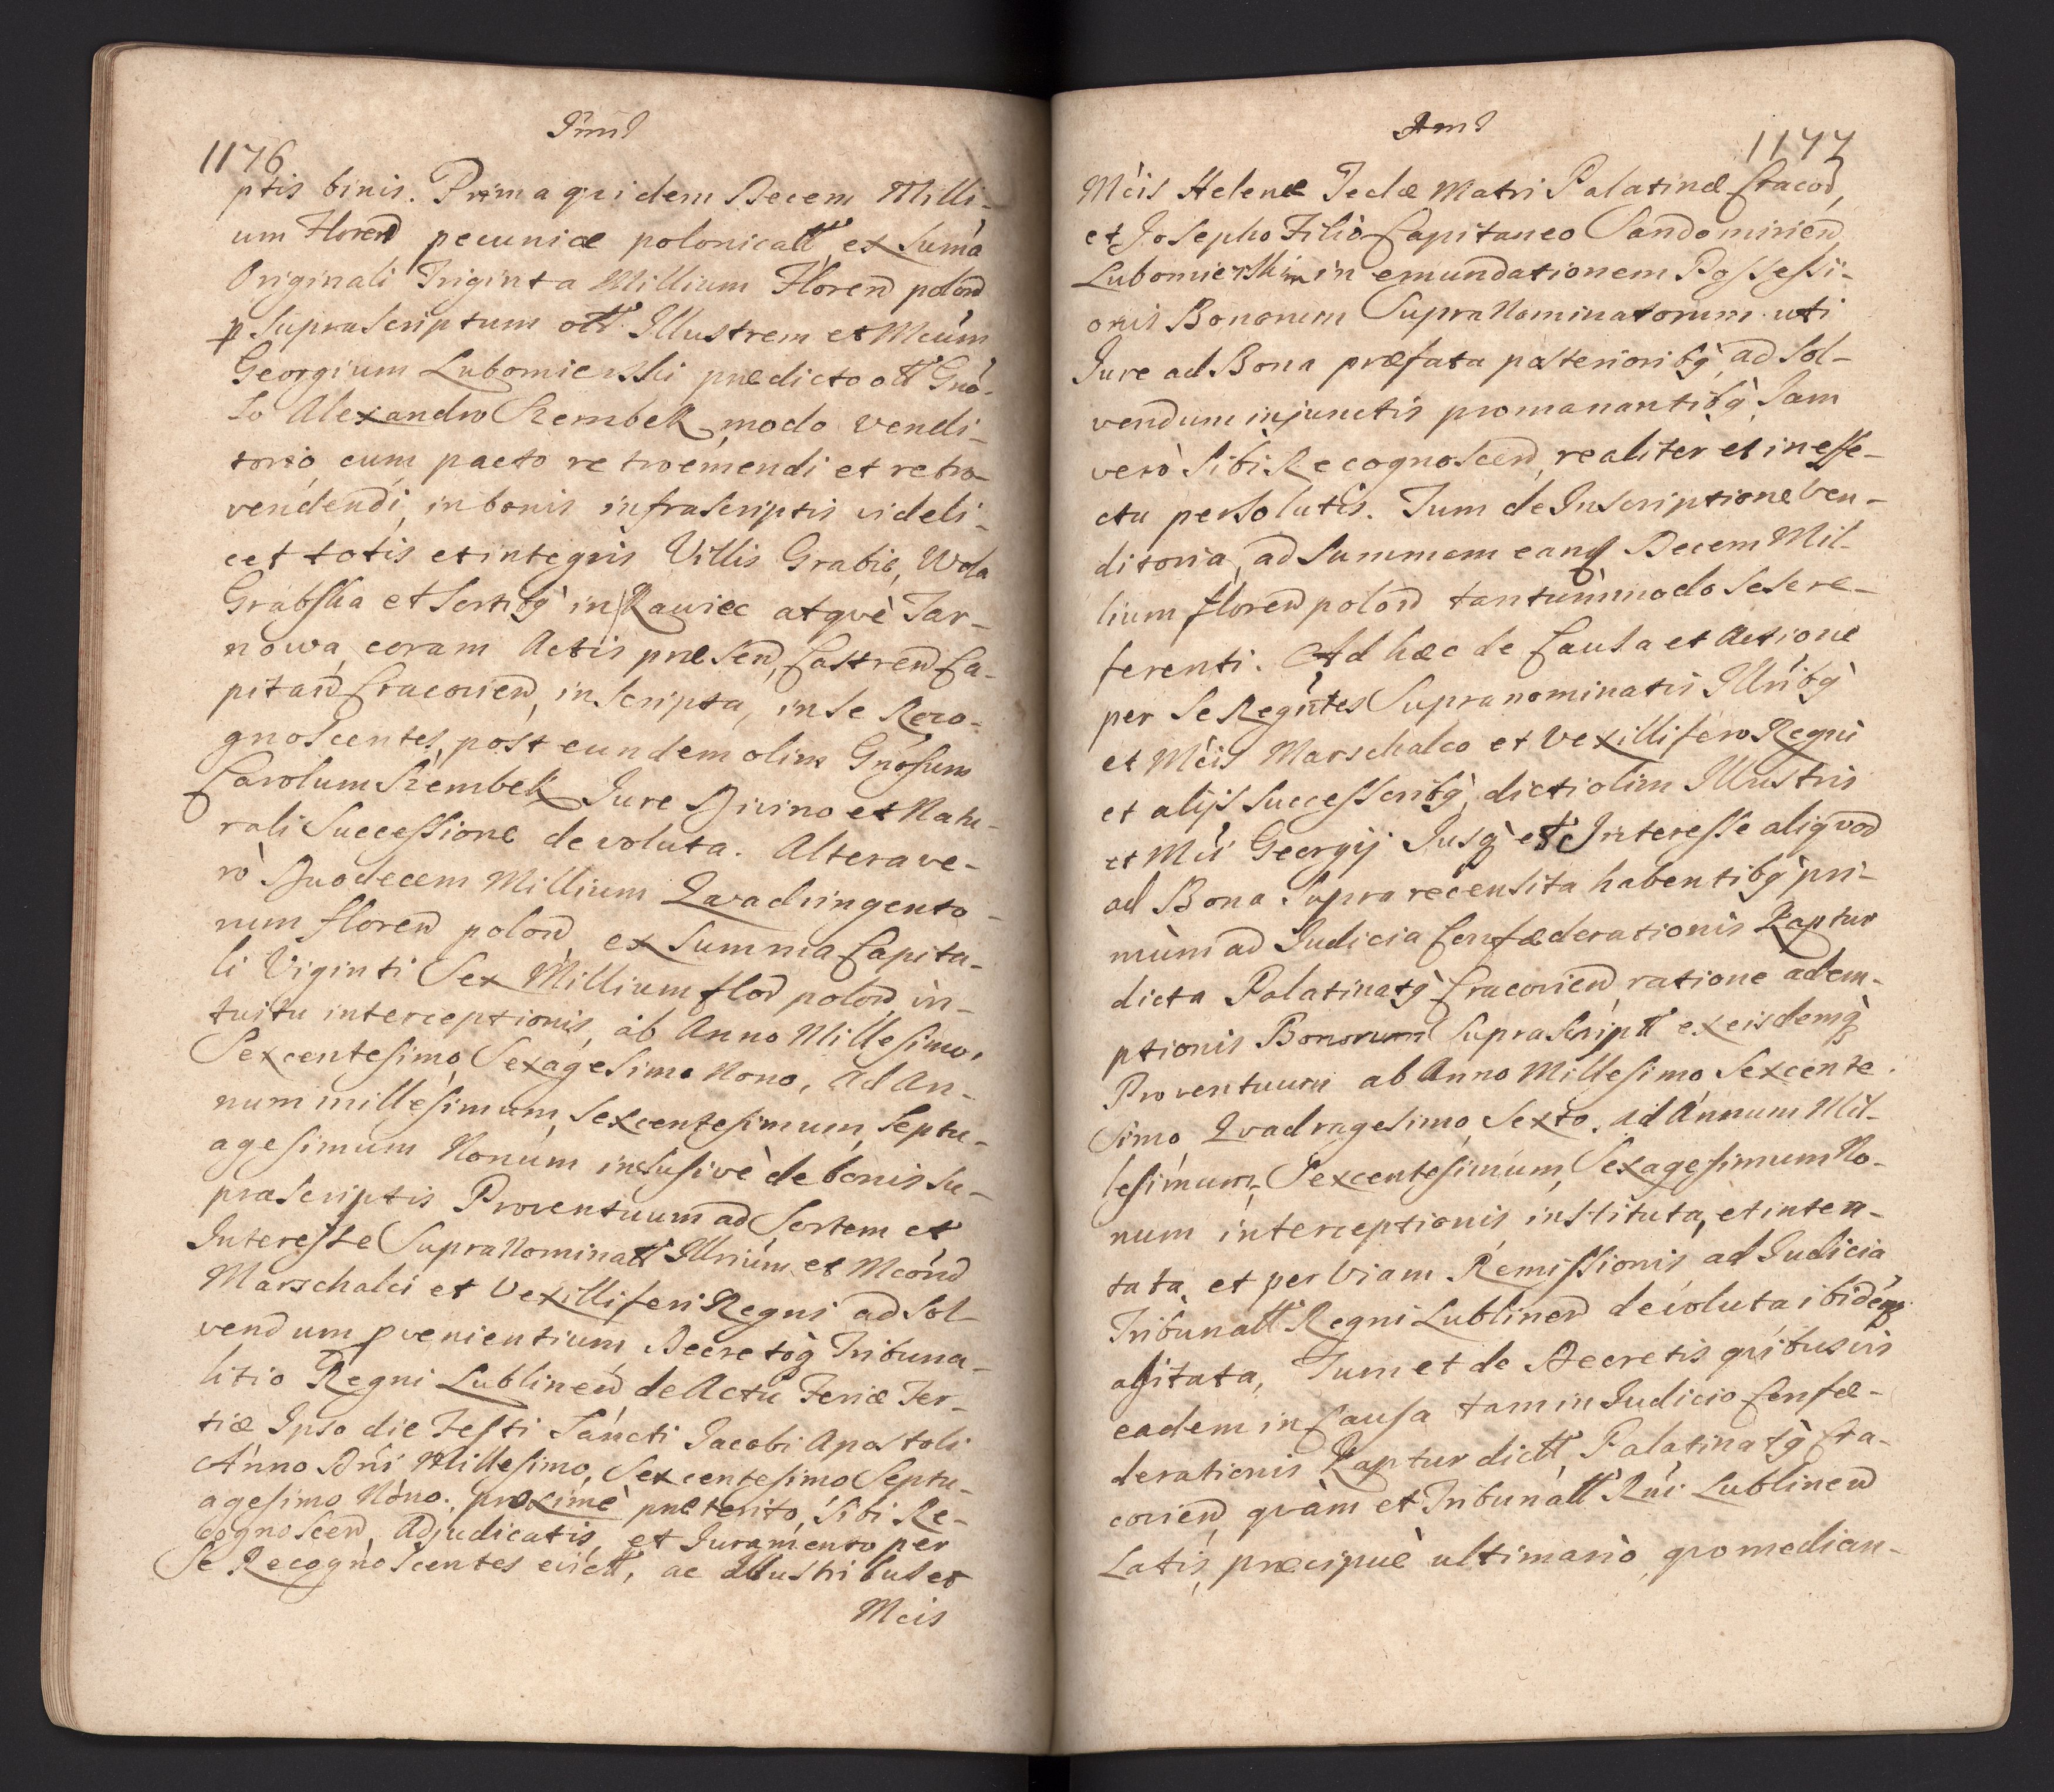 1176
ptis binis. Prima qvidem Decem Milli-
um Floren pecuniæ polonicall, ex Suma
Originali Triginta Millium Floren polon
p supraScriptum oll Illustrem et Mcum
Georgium Lubomierski prædicto oll Gno-
so Alexandro Szembek modo vendi-
torio cum pacto retroemendi et retro-
vendendi, in bonis infraScriptis videli-
cet totis et integris Villis Grabie, Wola
Grabska et Sortibq in Rawiec atqvè Tar-
nowa coram Actis præsen, Castren Ca-
pitan Cracovien, inscripta, in se Reco-
gnoScentes, post eundem olim Gnosum
Carolum Szembek Jure Divino et Natu-
rali Successione devoluta. Altera ve-
rò Duodecem Millium Qvadringento-
rum floren polon, ex Summa Capita-
li Viginti Sex Millium flor polon in-
tuitu interceptionis, ab Anno Millesimo,
Sexcentesimo, Sexagesimo Nono, Ad An-
num millesimum, Sexcentesimum, Septu-
agesimum Nonum inclusivè de bonis su-
praScriptis Proventuum ad Sortem et
Interesse SupraNominall Illrium et Mcon
Marschalci et Vexilliferi Regni ad Sol-
vendum pvenientium, Decretoq Tribuna-
litio Regni Lublinen de Actu Feriæ Ter-
tiæ Ipso die Festi Sancti Jacobi Apostoli
Anno Dni Millesimo, Sexcentesimo Septu-
agesimo Nono, proximè præterito, Sibi Re-
cognoScen, Adjudicatis, et Juramento per
Se RecognoScentes evicll, ac Illustribus et
Mcis
1177
Mcis Helenæ Teclæ Matri Palatinæ Cracov,
et Josepho Filio Capitaneo Sandomirien,
Lubomierskim in emundationem Possessi-
onis Bonorum SupraNominatorum uti
Jure ad Bona præfata posterioribq, ad Sol-
vendum injunctis promanantibq, Jam
verò Sibi RecognoScen, realitèr et in effe-
ctu persolutis. Tum de Inscriptione Ven-
ditoria, ad Summam eand Decem Mil-
lium floren polon tantùmmodo Sese re-
ferenti. Ad hæc de Causa et Actione
per Se Regntes Supranominatis Illribq
et Mcis Marschalco et Vexillifero Regni
et alijs Successoribq, dicti olim Illustris
et Mci Georgij Jusq et Interesse aliqvod
ad Bona Supra recensita habentibq pri-
mùm ad Judicia Confæderationis Kaptur
dicta Palatinatq Cracovien ratione adem-
ptionis Bonorum SupraScriptll ex eisdemq
Proventuum ab Anno Millesimo Sexcente-
simo Qvadragesimo Sexto, ad Annum Mil-
lesimum, Sexcentesimum, Sexagesimum No-
num interceptionis instituta, et inten-
tata, et per Viam Remissionis ad Judicia
Tribunall Regni Lublinen devoluta, ibidemq
agitata, Tum et de Decretis qvibusvis
eadem in Causa tam in Judicio Confæ-
derationis Kaptur dicll, Palatinatq Cra-
covien, qvàm et Tribunall Rni Lublinen
Latis, præcipuè ultimario, qvo median-